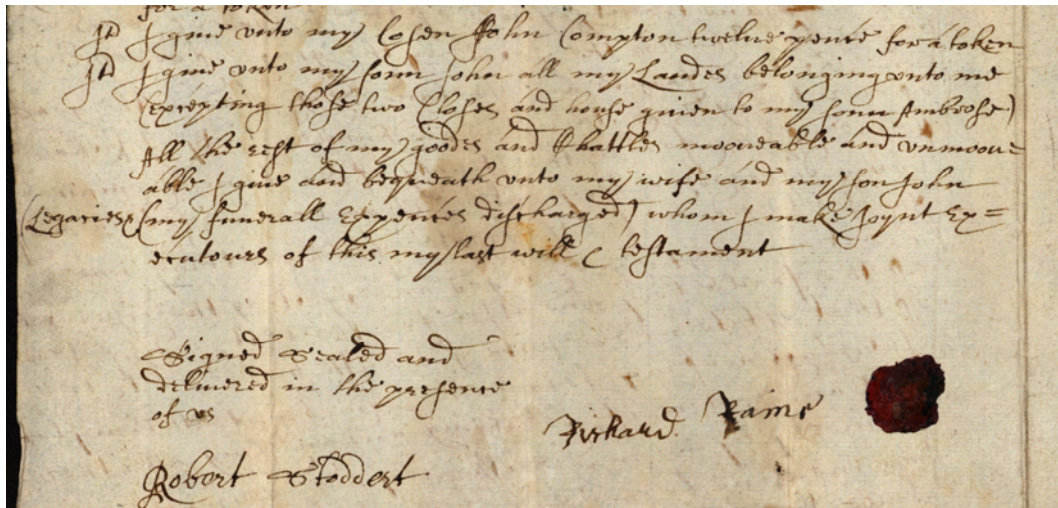 for a token
Itd I giue vnto my Cosen John Compton twelue pence for a token
Itd I giue vnto my sonn John all my Landes belonging vnto me
(excepting those two Closes and house giuen to my sonn Ambrose)
All the rest of my goodes and Chattles mooueable and vnmoou=
able I giue and bequeath vnto my wife and my son John
(Legacies & (my funerall Expences discharged) whom I make Joynt Ex=
ecutours of this my last will & testament
Signed Sealed and
deliuered in the presence
of vs
Richard Raine
Robert Stoddert